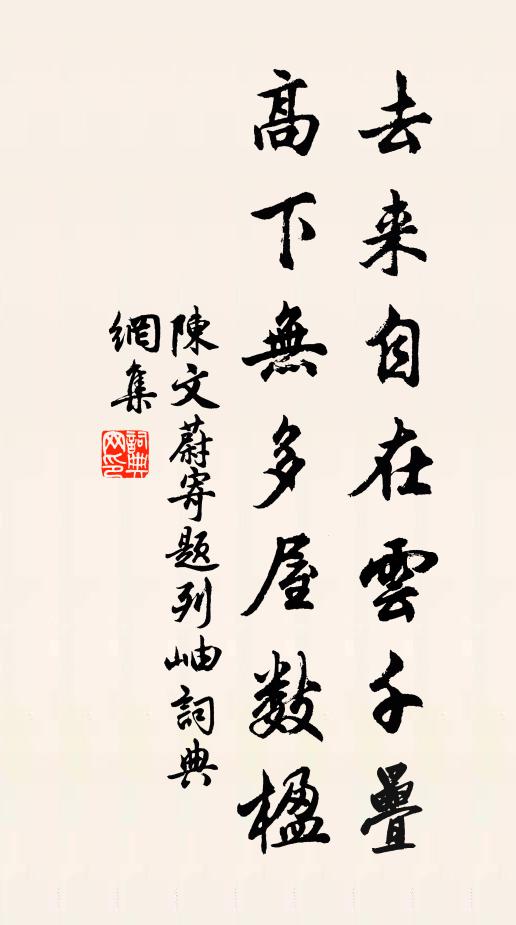 去来自在雲千疊
高下無多屋數楹
陳文蔚寄題列岫詞典
網集
詞典
网印